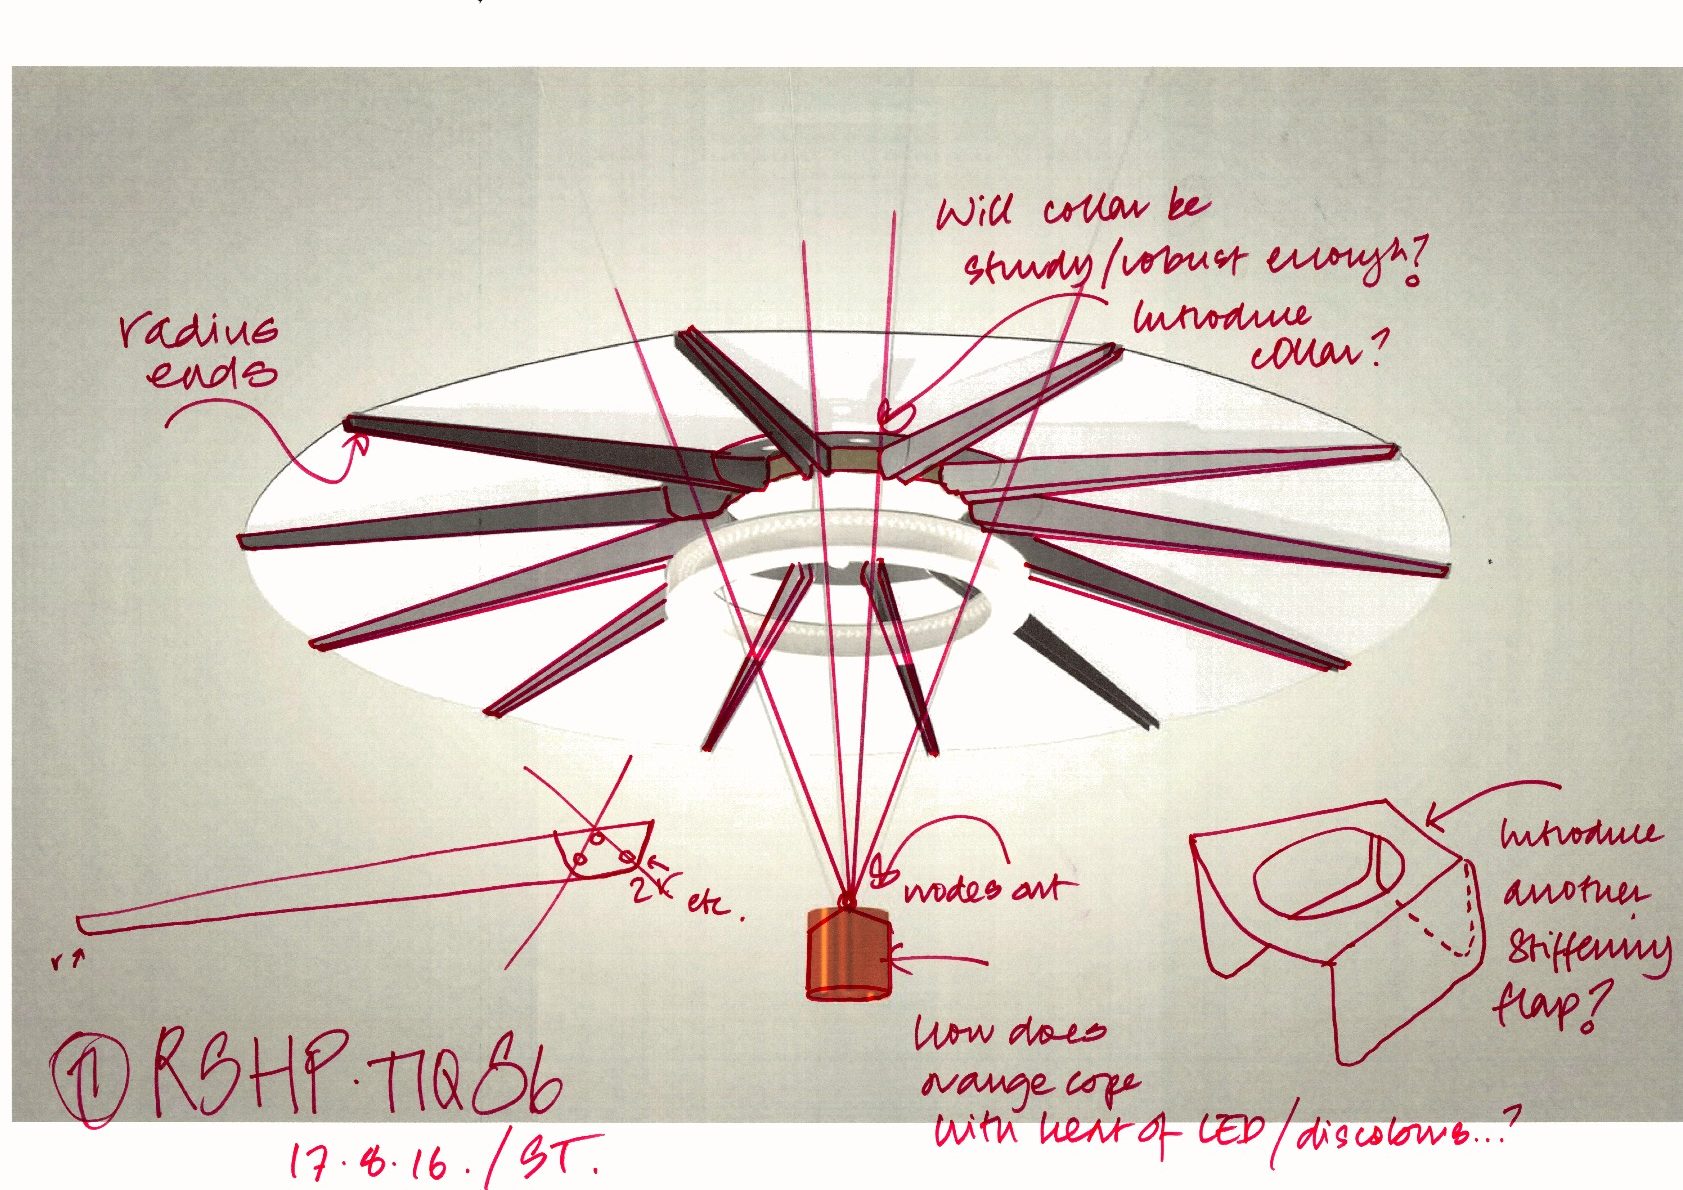 Will collar be
study/robust enough?
Introduce
collar?
radius
ends
nodes out
2r etc.
r
Introduce
another
stiffening
flap?
How does
orange cope
with heat of LED/discolours...?
RSHP.
17.8.16./ST.